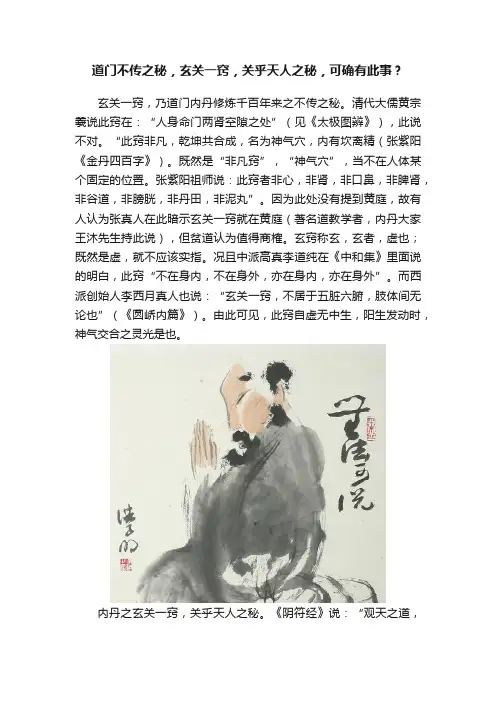 道门不传之秘，玄关一窍，关乎天人之秘，可确有此事？
玄关一窍，乃道门内丹修炼千百年来之不传之秘。清代大儒黄宗
羲说此窍在：“人身命门两肾空隙之处”（见《太极图辨》），此说
不对。“此窍非凡，乾坤共合成，名为神气穴，内有坎离精（张紫阳
《金丹四百字》）。既然是“非凡窍”，“神气穴”，当不在人体某
个固定的位置。张紫阳祖师说：此窍者非心，非肾，非口鼻，非脾肾，
非谷道，非膀胱，非丹田，非泥丸”。因为此处没有提到黄庭，故有
人认为张真人在此暗示玄关一窍就在黄庭（著名道教学者，内丹大家
王沐先生持此说），但贫道认为值得商榷。玄窍称玄，玄者，虚也；
既然是虚，就不应该实指。况且中派高真李道纯在《中和集》里面说
的明白，此窍“不在身内，不在身外，亦在身内，亦在身外”。而西
派创始人李西月真人也说：“玄关一窍，不居于五脏六腑，肢体间无
论也”（《圆峤内篇》）。由此可见，此窍自虚无中生，阳生发动时，
神气交合之灵光是也。
無法可说
内丹之玄关一窍，关乎天人之秘。《阴符经》说：“观天之道，